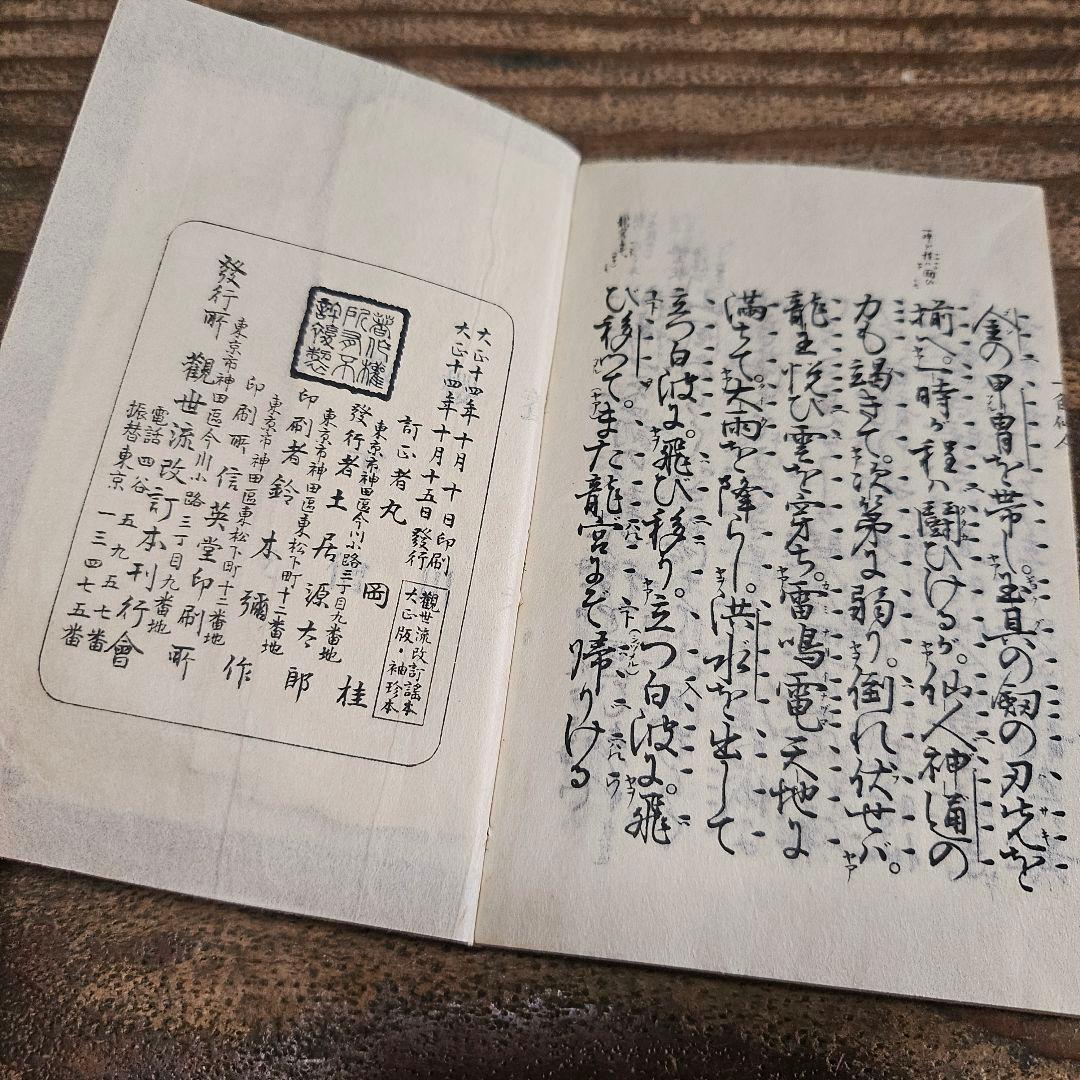 金の甲冑を帯し。玉具の剱の刃先を
揃へ。一時が程ハ闘ひけるが。仙人神通の
力も竭きて。次第に弱り。倒れ伏せバ。
龍王悦び雲を穿ち。雷鳴電天地に
満ちて。大雨を降らし。洪水を出して
立つ白波に。飛び移り。立つ白波に。飛
び移つて。また龍宮にぞ帰りける
大正十四年十月十日印刷
大正十四年十月十五日發行
觀世流改訂謡本
大正版・袖珍本
訂正者 丸岡桂
東京市神田區今川小路三丁目九番地
發行者 土居源太郎
東京市神田區東松下町十二番地
印刷者 鈴木彌作
東京市神田區東松下町十二番地
印刷所 信英堂印刷所
東京市神田區今川小路三丁目九番地
發行所 觀世流改訂本刊行會
電話四谷五九五七番
振替東京一三四七五番
著作權
所有不
許複製